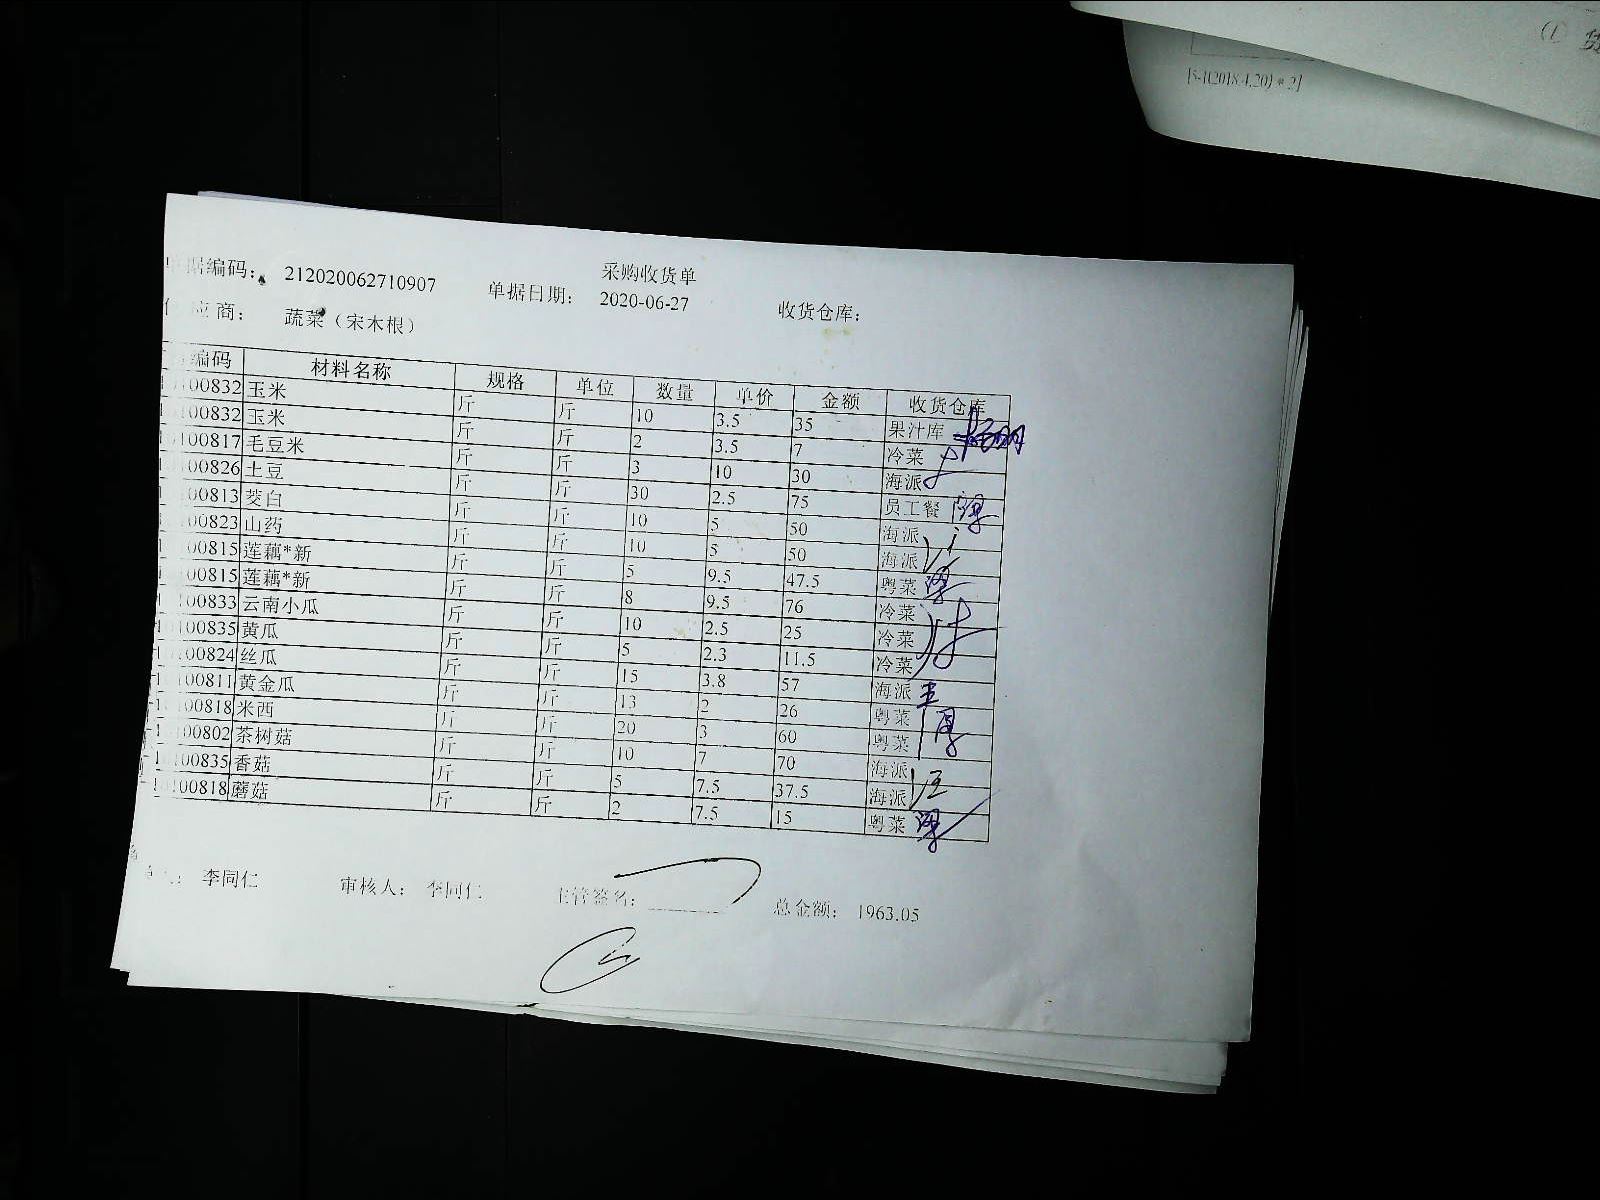 (1) 货
[5-1(2018.4.20)*2]
采购收货单
据编码: 212020062710907 单据日期: 2020-06-27 收货仓库:
应商: 蔬菜（宋木根）
编码 材料名称 规格 单位 数量 单价 金额 收货仓库
100832 玉米 斤 斤 10 3.5 35 果汁库
100832 玉米 斤 斤 2 3.5 7 冷菜
100817 毛豆米 斤 斤 3 10 30 海派
100826 土豆 斤 斤 30 2.5 75 员工餐
100813 茭白 斤 斤 10 5 50 海派
100823 山药 斤 斤 10 5 50 海派
100815 莲藕*新 斤 斤 5 9.5 47.5 粤菜
100815 莲藕*新 斤 斤 8 9.5 76 冷菜
100833 云南小瓜 斤 斤 10 2.5 25 冷菜
100835 黄瓜 斤 斤 5 2.3 11.5 冷菜
100824 丝瓜 斤 斤 15 3.8 57 海派
100811 黄金瓜 斤 斤 13 2 26 粤菜
100818 米西 斤 斤 20 3 60 粤菜
100802 茶树菇 斤 斤 10 7 70 海派
100835 香菇 斤 斤 5 7.5 37.5 海派
100818 蘑菇 斤 斤 2 7.5 15 粤菜
李同仁 审核人: 李同仁 主管签名: 总金额: 1963.05